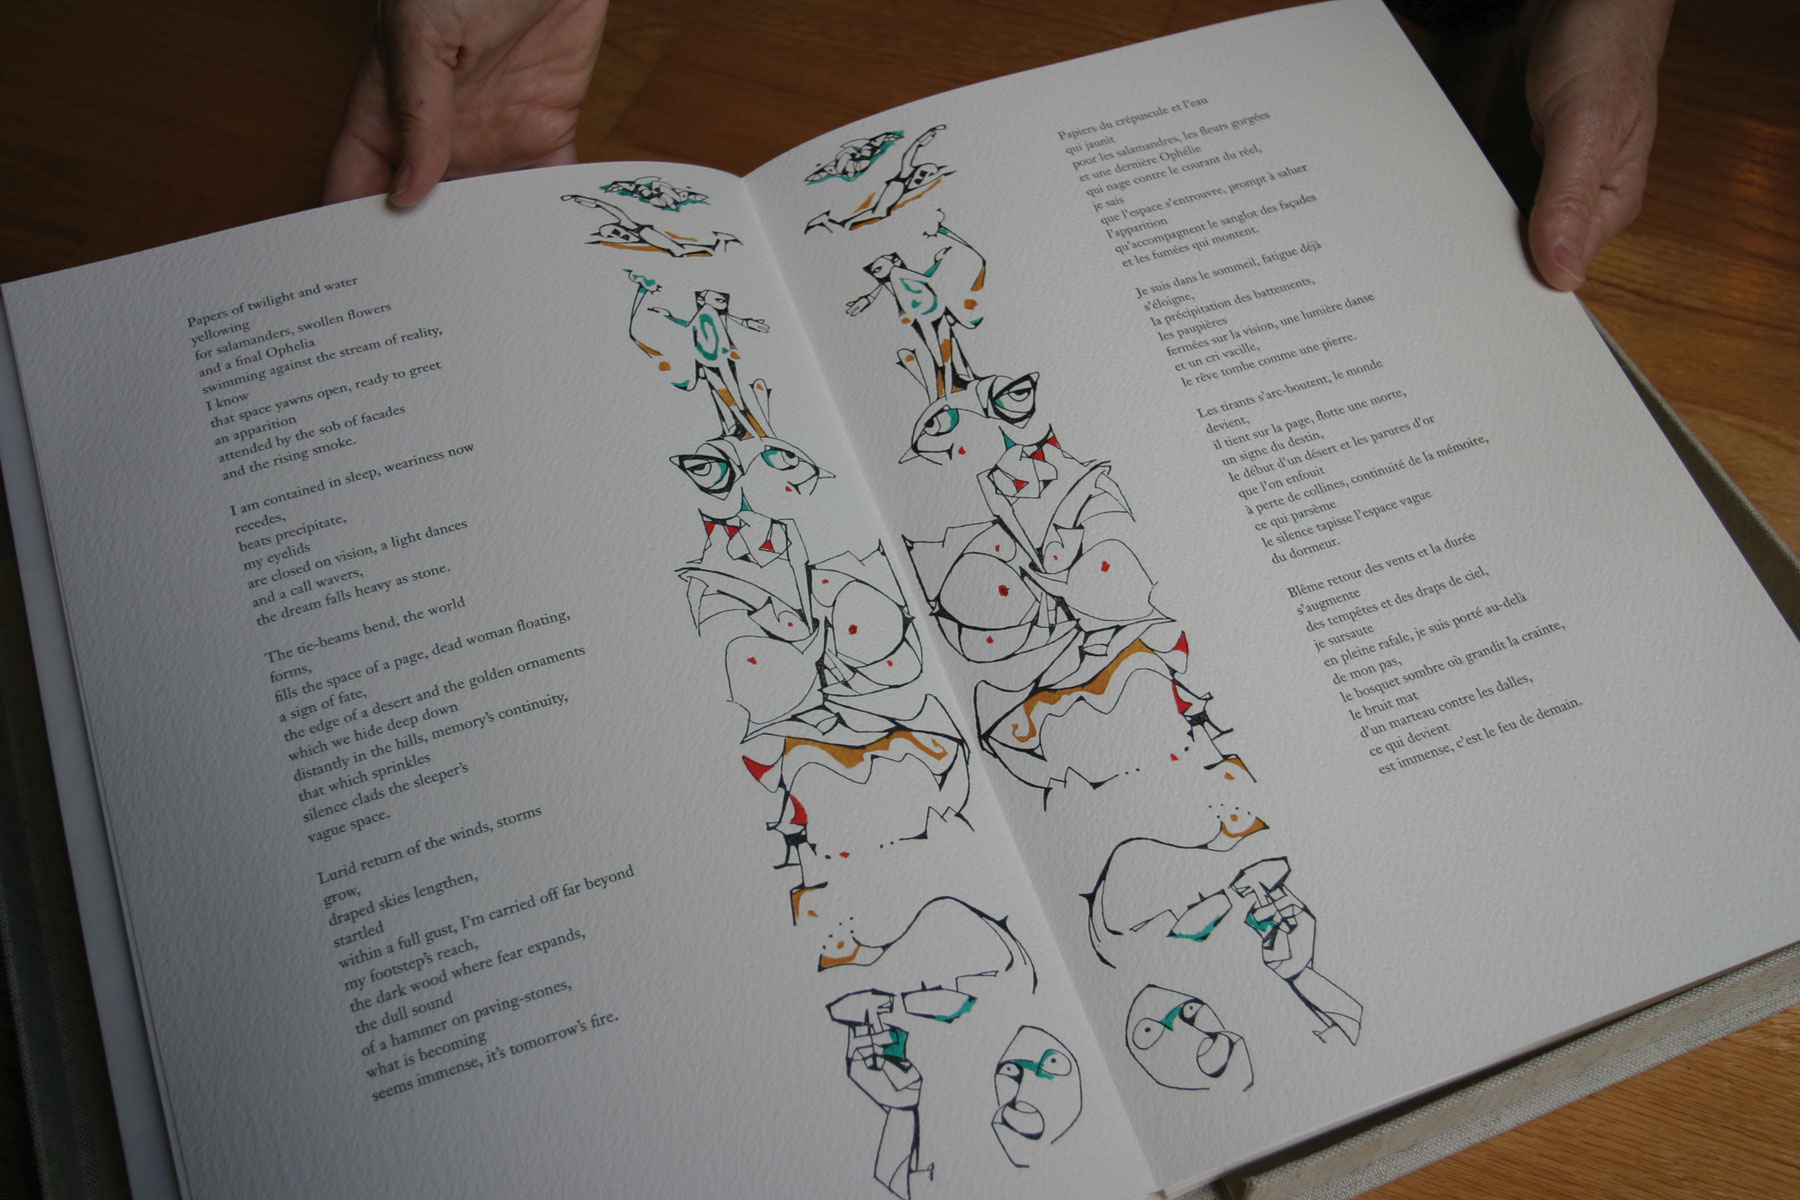 Papers of twilight and water
yellowing
for salamanders, swollen flowers
and a final Ophelia
swimming against the stream of reality,
I know
that space yawns open, ready to greet
an apparition
attended by the sob of facades
and the rising smoke.
I am contained in sleep, weariness now
recedes,
beats precipitate,
my eyelids
are closed on vision, a light dances
and a call wavers,
the dream falls heavy as stone.
The tie-beams bend, the world
forms,
fills the space of a page, dead woman floating,
a sign of fate,
the edge of a desert and the golden ornaments
which we hide deep down
distantly in the hills, memory's continuity,
that which sprinkles
silence clads the sleeper's
vague space.
Lurid return of the winds, storms
grow,
draped skies lengthen,
startled
within a full gust, I'm carried off far beyond
my footstep's reach,
the dark wood where fear expands,
the dull sound
of a hammer on paving-stones,
what is becoming
seems immense, it's tomorrow's fire.
Papiers du crépuscule et l'eau
qui jaunit
pour les salamandres, les fleurs gorgées
et une dernière Ophélie
qui nage contre le courant du réel,
je sais
que l'espace s'entrouvre, prompt à saluer
l'apparition
qu'accompagnent le sanglot des façades
et les fumées qui montent.
Je suis dans le sommeil, fatigue déjà
s'éloigne,
la précipitation des battements,
les paupières
fermées sur la vision, une lumière danse
et un cri vacille,
le rêve tombe comme une pierre.
Les tirants s'arc-boutent, le monde
devient,
il tient sur la page, flotte une morte,
un signe du destin,
le début d'un désert et les parures d'or
que l'on enfouit
à perte de collines, continuité de la mémoire,
ce qui parsème
le silence tapisse l'espace vague
du dormeur.
Blême retour des vents et la durée
s'augmente
des tempêtes et des draps de ciel,
je sursaute
en pleine rafale, je suis porté au-delà
de mon pas,
le bosquet sombre où grandit la crainte,
le bruit mat
d'un marteau contre les dalles,
ce qui devient
est immense, c'est le feu de demain.